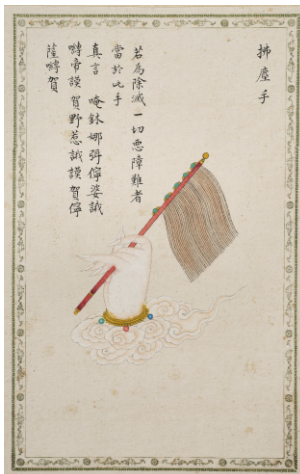 拂塵手
若為除滅一切悪障難者
當於此手
真言 唵鉢娜弭儜婆誐
嚩帝謨賀野惹誐謨賀儜
薩嚩賀